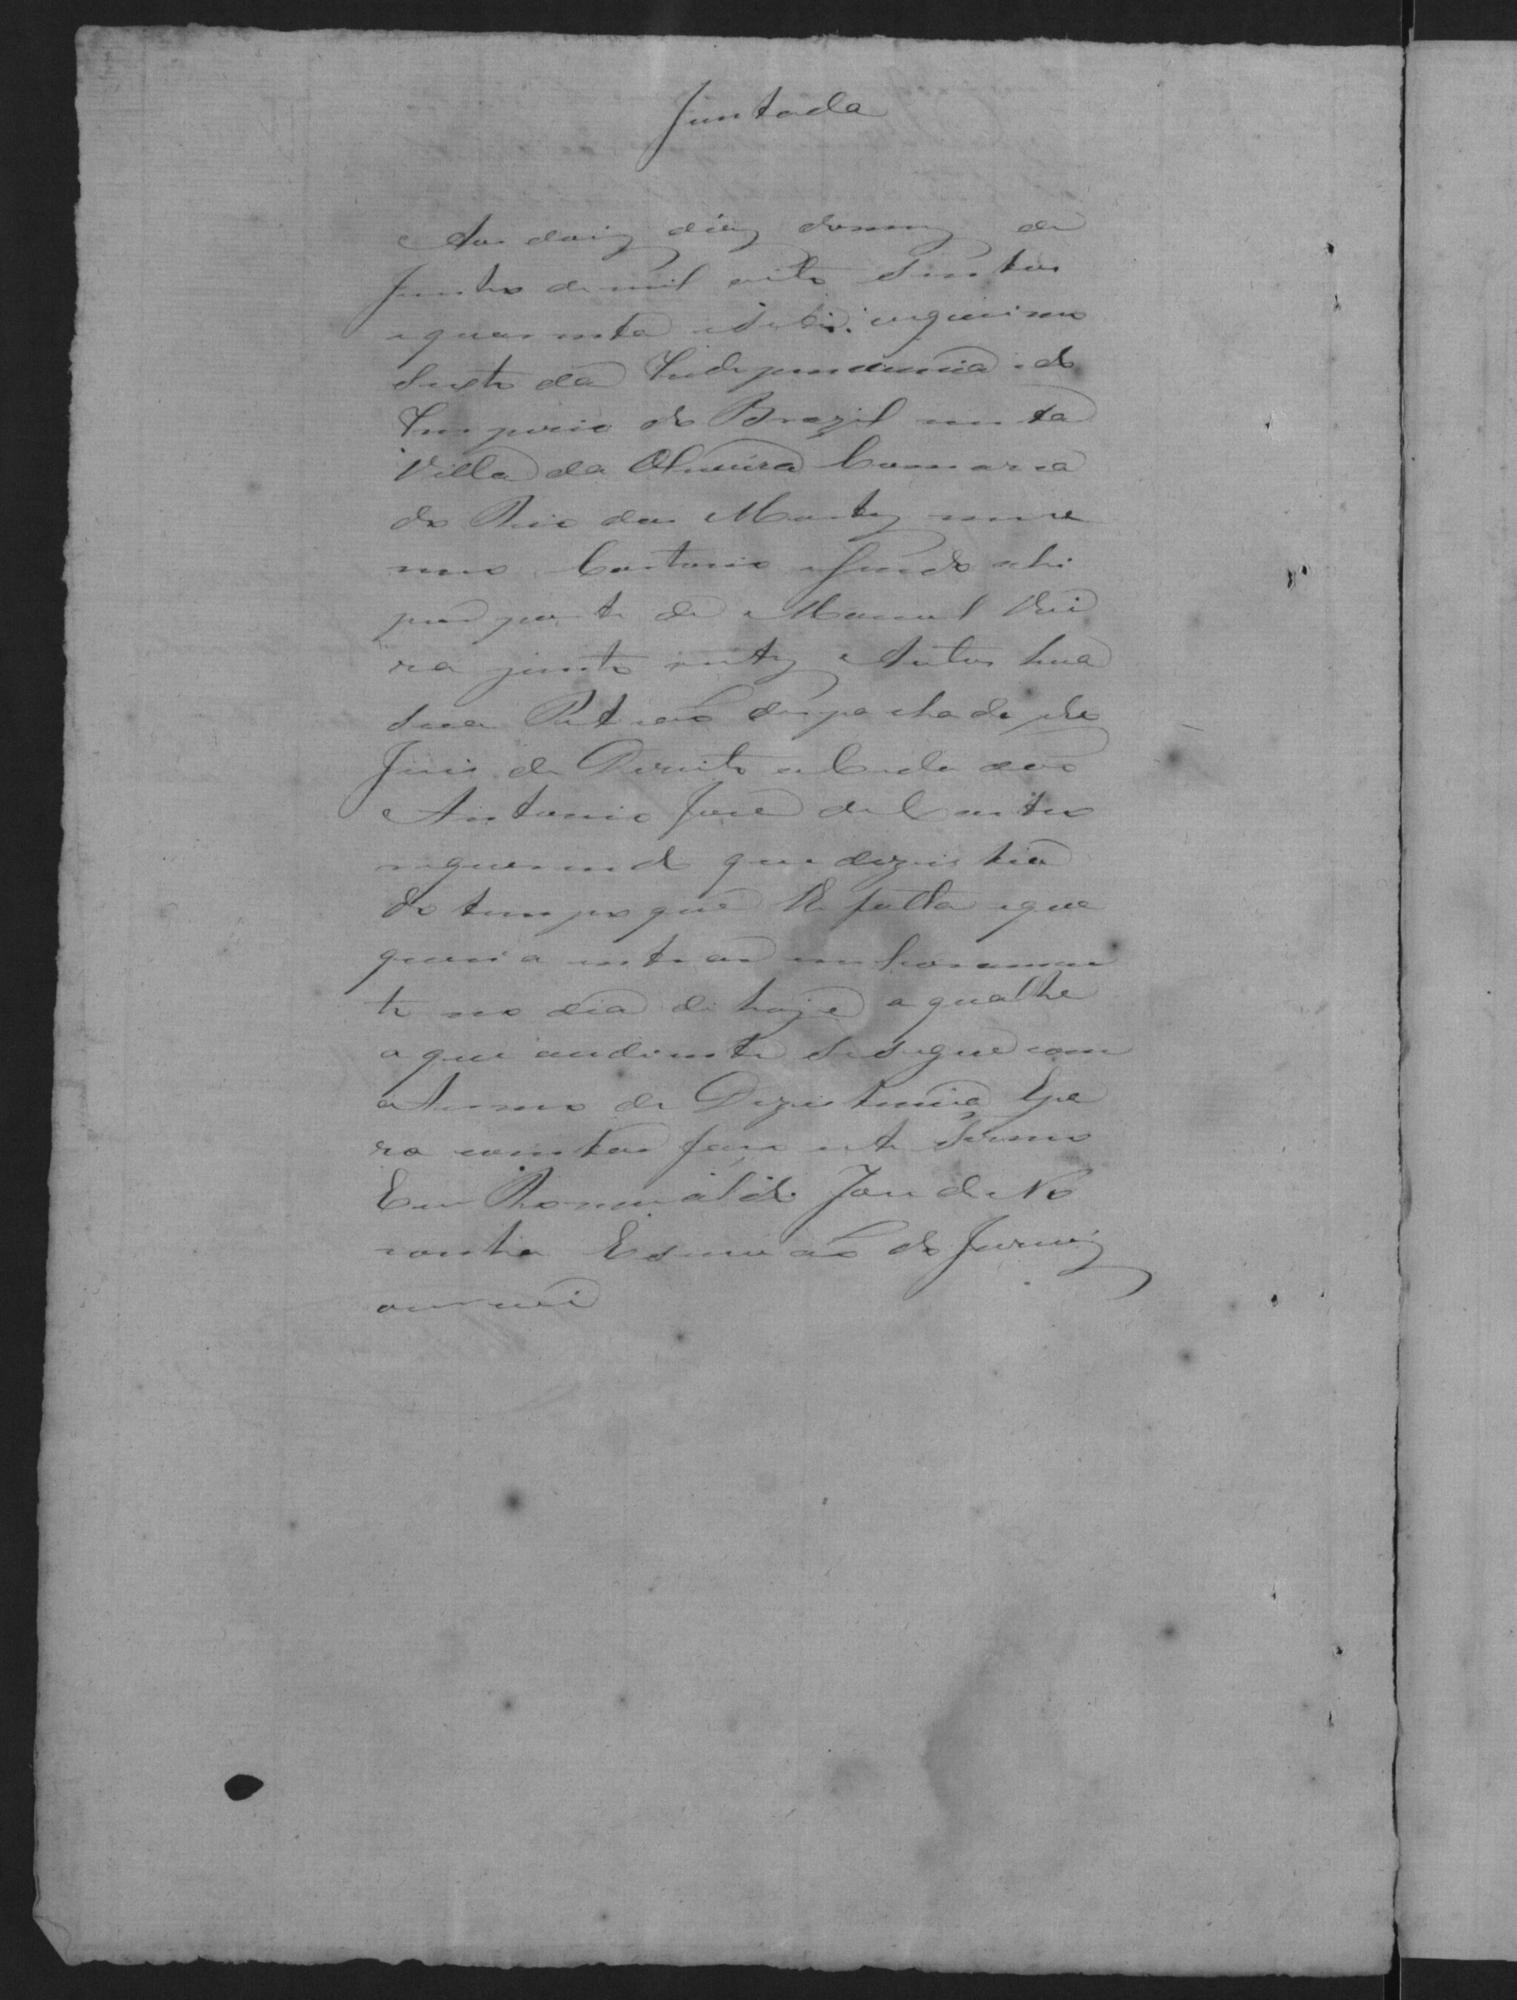 Juntada
Aos dois dias do mes de
Junho de mil oito Sentos
e quarenta e sete vigecimo
Sexto da Independencia e do
Imperio do Brazil nesta
Villa da Oliveira Comarca
do Rio das Mortes em me
meo Cartorio e sendo ahi
por parte de Manoel Viei
ra junto estes Autos hua
sua Peticaõ despachada pelo
Juis de Direito
Antonio José de Castro
requerendo que dezistia
do tempo que lhe falta e que
queria entrar em livramen
to no dia de hoje a qual he
a que ao diante se segue com
o Termo de Dezistencia Epa
ra constar faço este Termo
Eu Romualdo José de No
ronha Escrivaõ do Jury
escrevi